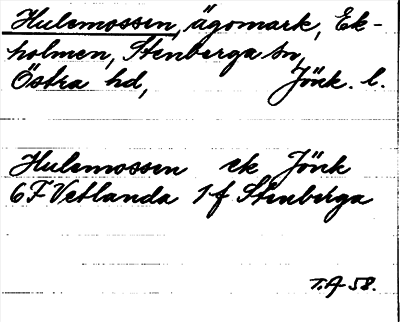 Hulemossen, ägomark, Ek-
holmen, Stenberga sn,
Östra hd, Jönk. l.
Hulemossen ek Jönk
6F Vetlanda 1f Stenberga
T.A 58.